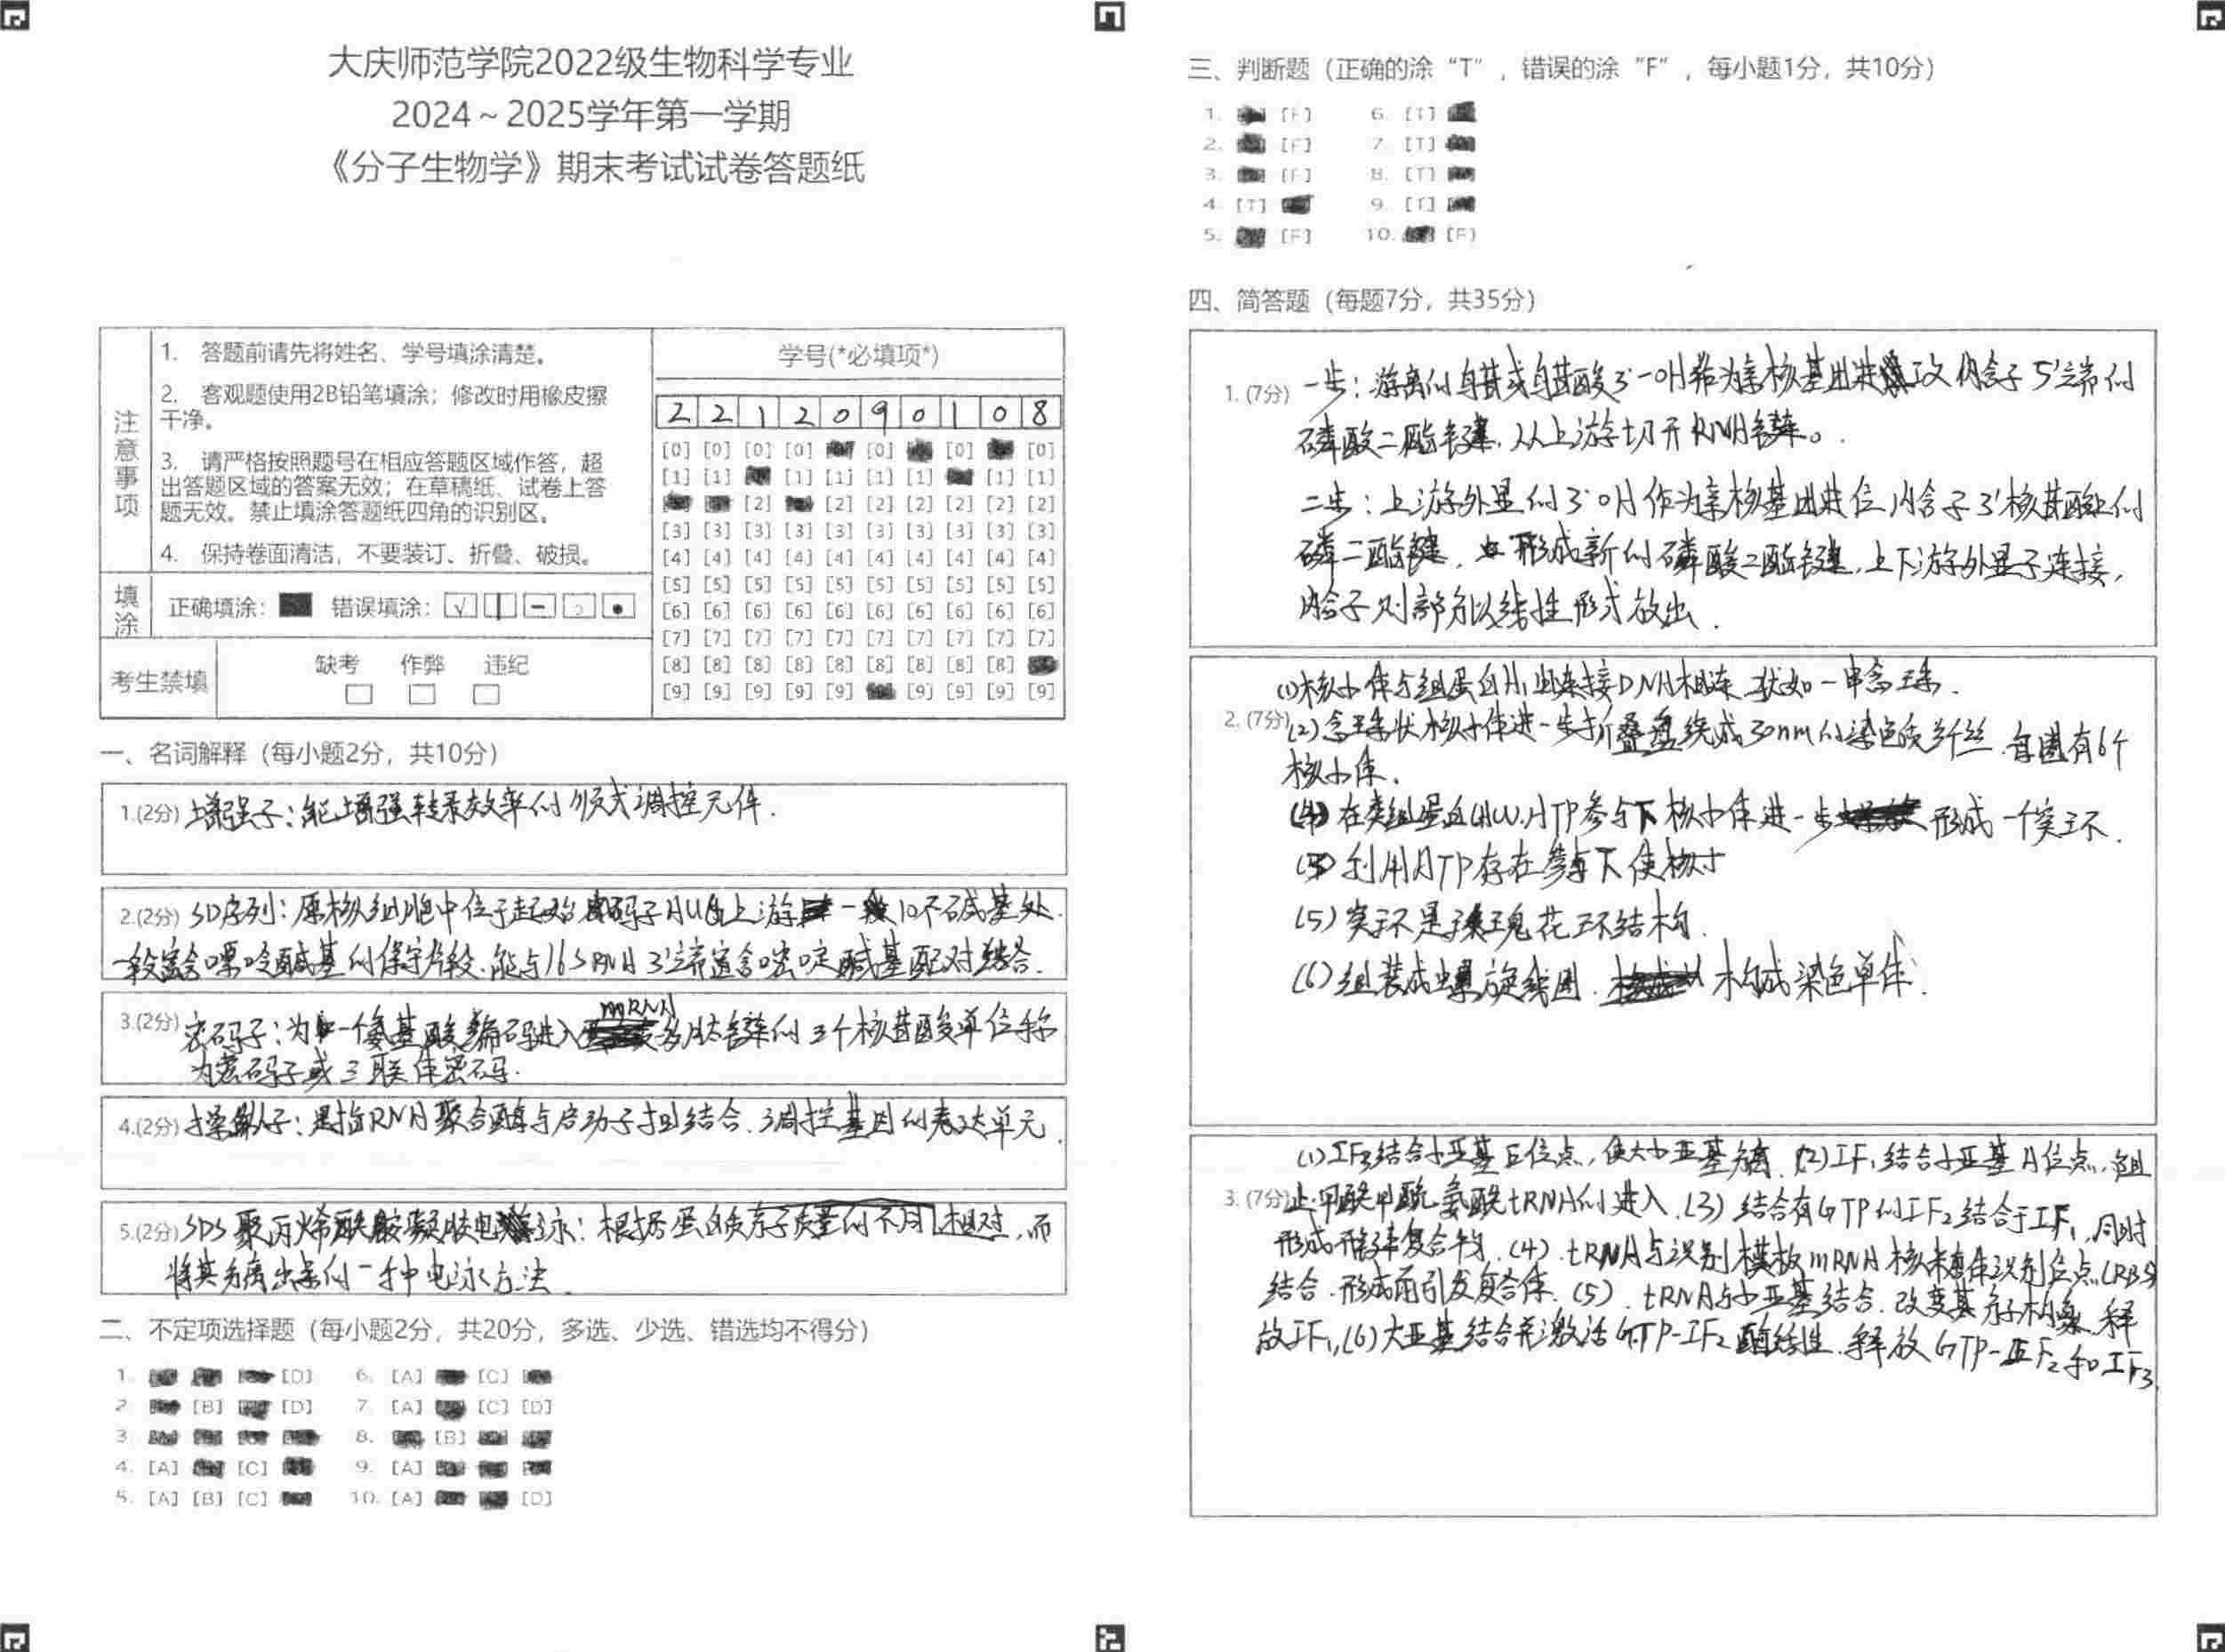 大庆师范学院2022级生物科学专业
2024～2025学年第一学期
《分子生物学》期末考试试卷答题纸
注意事项
1. 答题前请先将姓名、学号填涂清楚。
2. 客观题使用2B铅笔填涂；修改时用橡皮擦
干净。
3. 请严格按照题号在相应答题区域作答，超
出答题区域的答案无效；在草稿纸、试卷上答
题无效。禁止填涂答题纸四角的识别区。
4. 保持卷面清洁，不要装订、折叠、破损。
填涂
正确填涂： 错误填涂：
考生禁填
缺考 作弊 违纪
学号(*必填项*)
2 2 1 2 0 9 0 1 0 8
[0] [0] [0] [0] [0] [0] [0]
[1] [1] [1] [1] [1] [1] [1] [1]
[2] [2] [2] [2] [2] [2] [2]
[3] [3] [3] [3] [3] [3] [3] [3] [3] [3]
[4] [4] [4] [4] [4] [4] [4] [4] [4] [4]
[5] [5] [5] [5] [5] [5] [5] [5] [5] [5]
[6] [6] [6] [6] [6] [6] [6] [6] [6] [6]
[7] [7] [7] [7] [7] [7] [7] [7] [7] [7]
[8] [8] [8] [8] [8] [8] [8] [8] [8]
[9] [9] [9] [9] [9] [9] [9] [9] [9]
一、名词解释（每小题2分，共10分）
1.(2分) 增强子：能增强转录效率的顺式调控元件.
2.(2分) SD序列：原核细胞中位于起始密码子AUG上游 一般10个碱基处.
一段富含嘌呤碱基的保守片段.能与16SRNA3'端富含嘧啶碱基配对结合.
3.(2分) 密码子：为 一个氨基酸编码进入mRNA多肽链的三个核苷酸单位称
为密码子或三联体密码.
4.(2分) 操纵子：是指RNA聚合酶与启动子相结合.调控基因的表达单元.
5.(2分) SDS聚丙烯酰胺凝胶电泳：根据蛋白质分子质量的不同 ，而
将其分离出来的一种电泳方法.
二、不定项选择题（每小题2分，共20分，多选、少选、错选均不得分）
1. [D] 6. [A] [C]
2. [B] [D] 7. [A] [C] [D]
3. 8. [B]
4. [A] [C] 9. [A]
5. [A] [B] [C] 10. [A] [D]
三、判断题（正确的涂“T”，错误的涂“F”，每小题1分，共10分）
1. [F] 6. [T]
2. [F] 7. [T]
3. [F] 8. [T]
4. [T] 9. [T]
5. [F] 10. [F]
四、简答题（每题7分，共35分）
1. (7分) 一步：游离的鸟苷或鸟苷酸3'-OH作为亲核基团 攻内含子5'端的
磷酸二酯键，从上游切开RNA链。
二步：上游外显的3'OH作为亲核基团 位内含子3'核苷酸的
磷二酯键， 形成新的磷酸二酯键，上下游外显子连接，
内含子则部分以线性形式放出.
(1)核小体与组蛋白H1 连接DNA相连.状如一串念珠.
2. (7分) (2)念珠状核小体进一步折叠盘绕成30nm的染色质纤丝.每圈有6个
核小体.
在类组蛋白 ATP参与下核小体进一步 形成一个突环.
利用ATP存在参与下使核小
(5)突环是 玫瑰花环结构.
(6)组装成螺旋线圈. 构成染色单体.
(1)IF3结合小亚基E位点，使大小亚基分离.(2)IF1结合小亚基A位点，阻
3. (7分) 止 甲酰氨酰tRNA的进入.(3)结合有GTP的IF2结合于IF1,同时
形成 复合物.(4).tRNA与识别模板mRNA核糖体识别位点(RBS)
结合.形成前引发复合体.(5).tRNA与小亚基结合.改变其分子构象.释
放IF1,(6)大亚基结合并激活GTP-IF2酶活性.释放GTP-IF2和IF3.